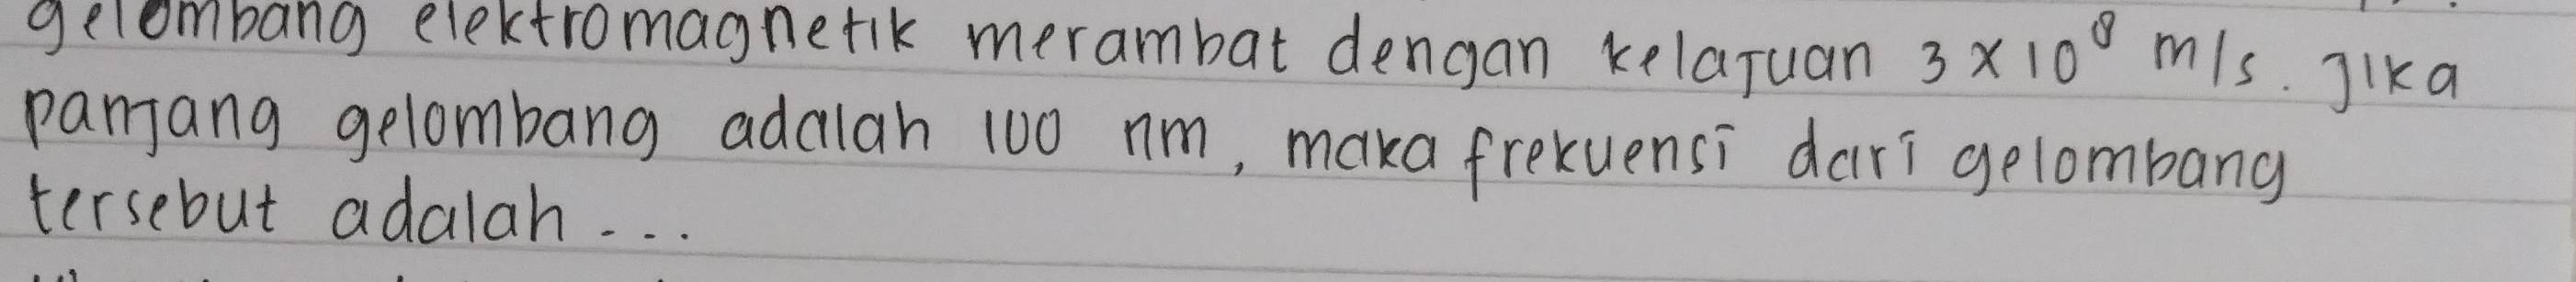 gelombang elektromagnetik merambat dengan kelajuan 3 x 10⁸ m/s. Jika
panjang gelombang adalah 100 nm, maka frekuensi dari gelombang
tersebut adalah...